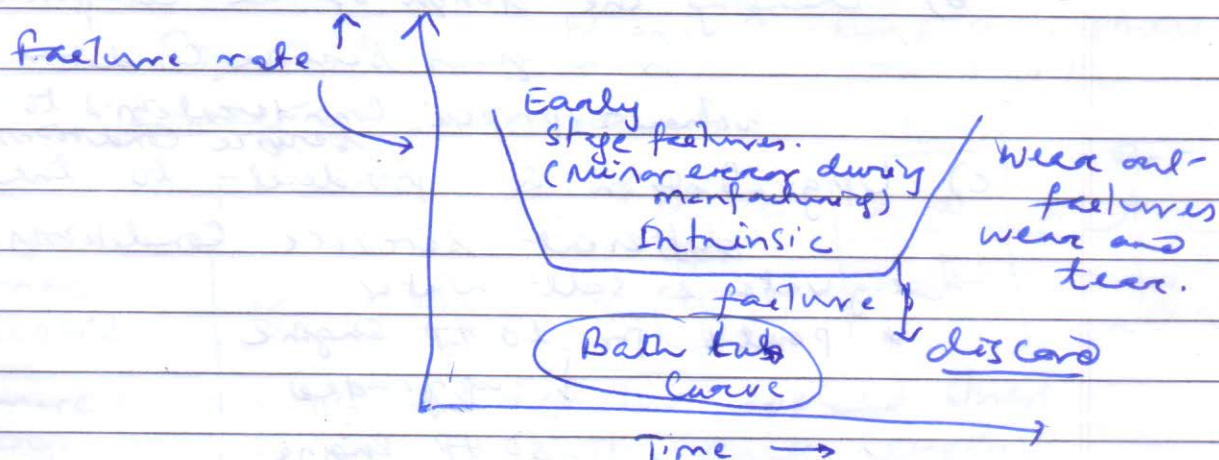 failure rate
Early
stage failures.
(Minor error during
manfacturing)
Intrinsic
failure
wear out
failures
wear and
tear.
discard
Bath tub
curve
Time